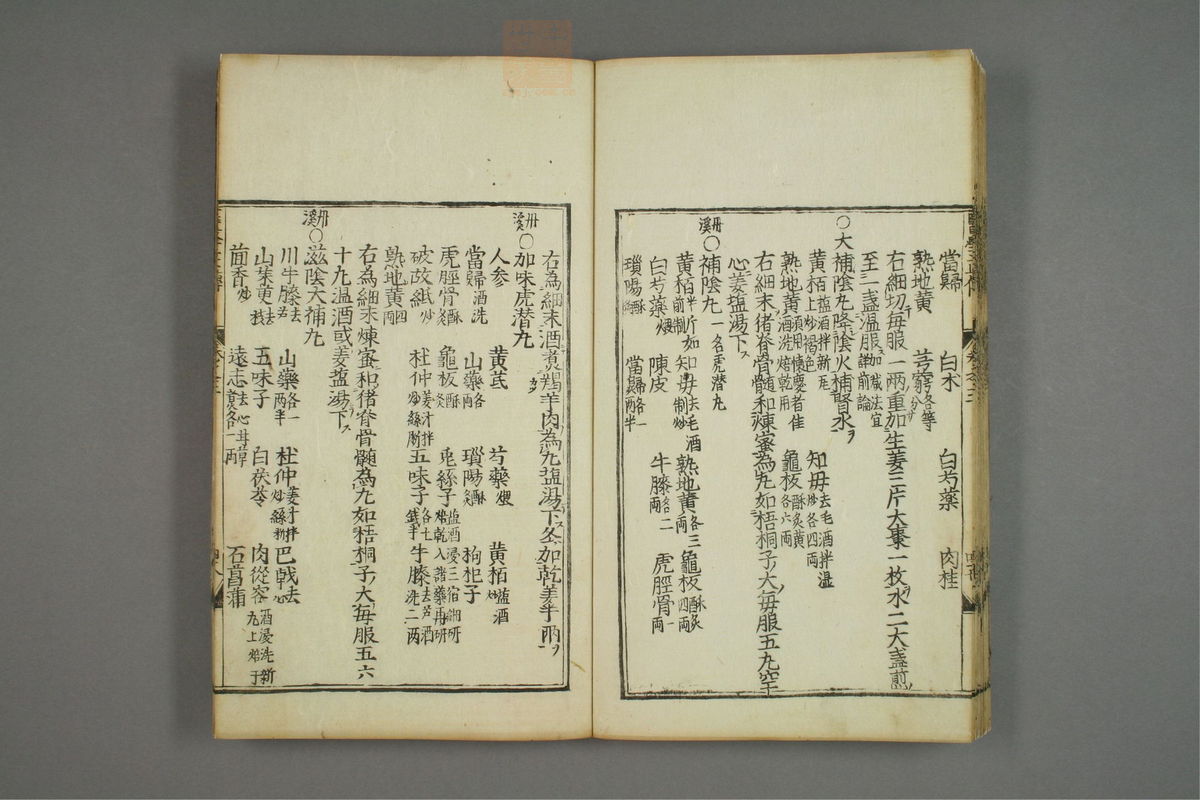 當歸 白朮 白芍藥 肉桂
熟地黄 芎藭各等分
右細切毎服一兩重加生姜三片大棗一枚水二大盞煎
至一盞温服加减法宜詳前論
○大補陰丸降陰火補腎水ヲ
黄栢塩酒拌新瓦上炒褐色 知毋去毛酒拌温炒各四兩
熟地黄須用懐慶者佳酒洗焙乾用 龜板酥炙黄各六兩
右細末猪脊骨髓和煉蜜為丸如梧桐子大毎服五丸空
心姜塩湯下ス
丹溪○補陰丸一名虎潜丸
黄栢半斤如前制 知毋去毛酒制炒 熟地黄各三兩 龜板酥炙四兩
白芍藥煨 陳皮 牛膝各二兩 虎脛骨一兩
瑣陽酥炙 當歸各一兩半
右為細末酒煮羯羊肉為丸塩湯下ス冬加乾姜半兩ヲ
丹溪○加味虎潜丸
人参 黄芪 芍藥煨 黄栢塩酒炒
當歸酒洗 山藥各一兩 瑣陽酥炙 拘杞子
虎脛骨酥炙 龜板酥炙 兎絲子塩酒浸三宿細研焙乾入諸藥再研
破故紙炒 杜仲姜汁拌炒絲断 五味子各七錢半 牛膝去芦酒洗二兩
熟地黄四兩
右為細末煉蜜和猪脊骨髓為丸如梧桐子大毎服五六
十丸温酒或姜塩湯下ス
丹溪○滋陰大補丸
川牛膝去芦 山藥各一兩半 杜仲姜汁拌炒絲断 巴戟去心
山茱萸去核 五味子 白茯苓 肉從容酒浸洗新瓦上焙于
茴香炒 遠志去心甘草煮各一兩 石菖蒲